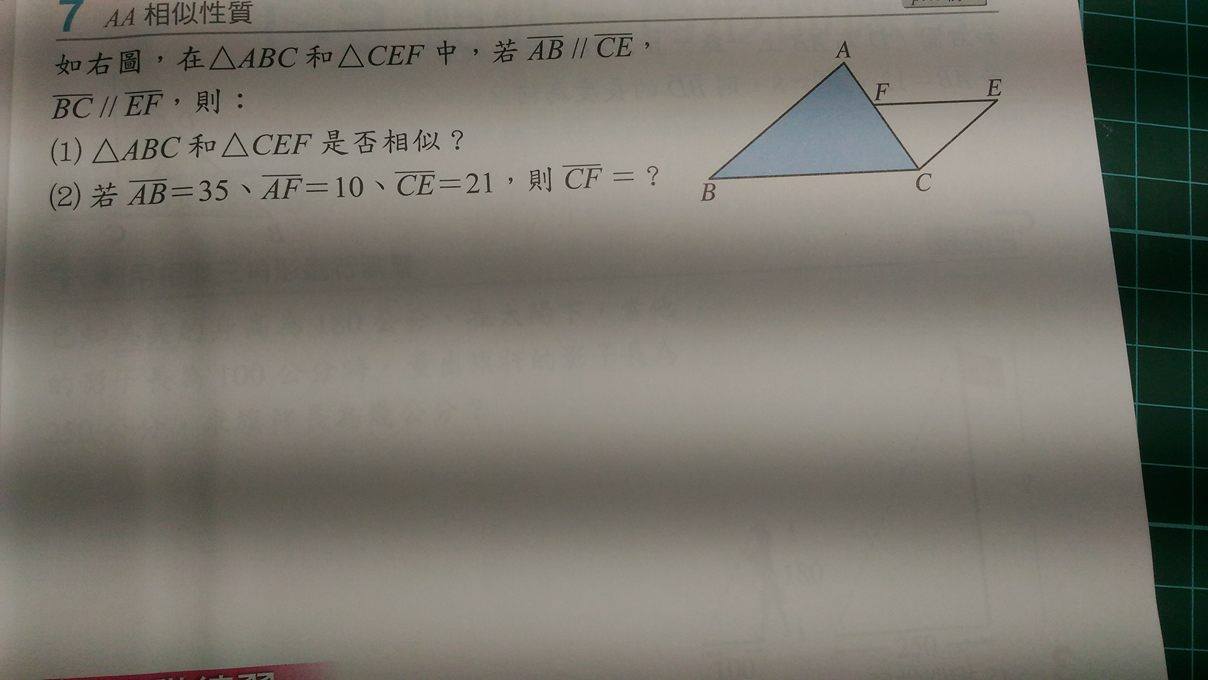 7 AA 相似性質
如右圖，在△ABC 和△CEF 中，若 AB // CE，
BC // EF，則：
(1) △ABC 和△CEF 是否相似？
(2) 若 AB＝35、AF＝10、CE＝21，則 CF ＝？
A
F
E
B
C